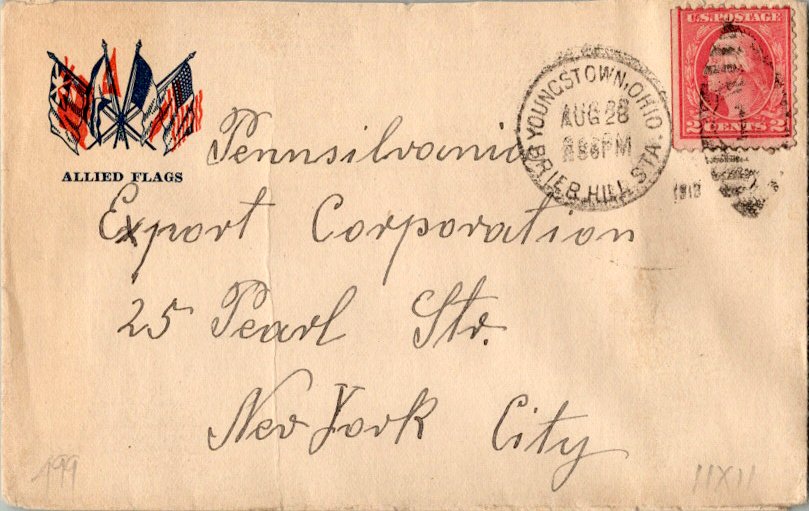 ALLIED FLAGS
YOUNGSTOWN, OHIO
AUG 28
PM
BRIER HILL STA.
U.S. POSTAGE
2 CENTS 2
Pennsilvania
Export Corporation
25 Pearl Str.
New York City
199
11X11